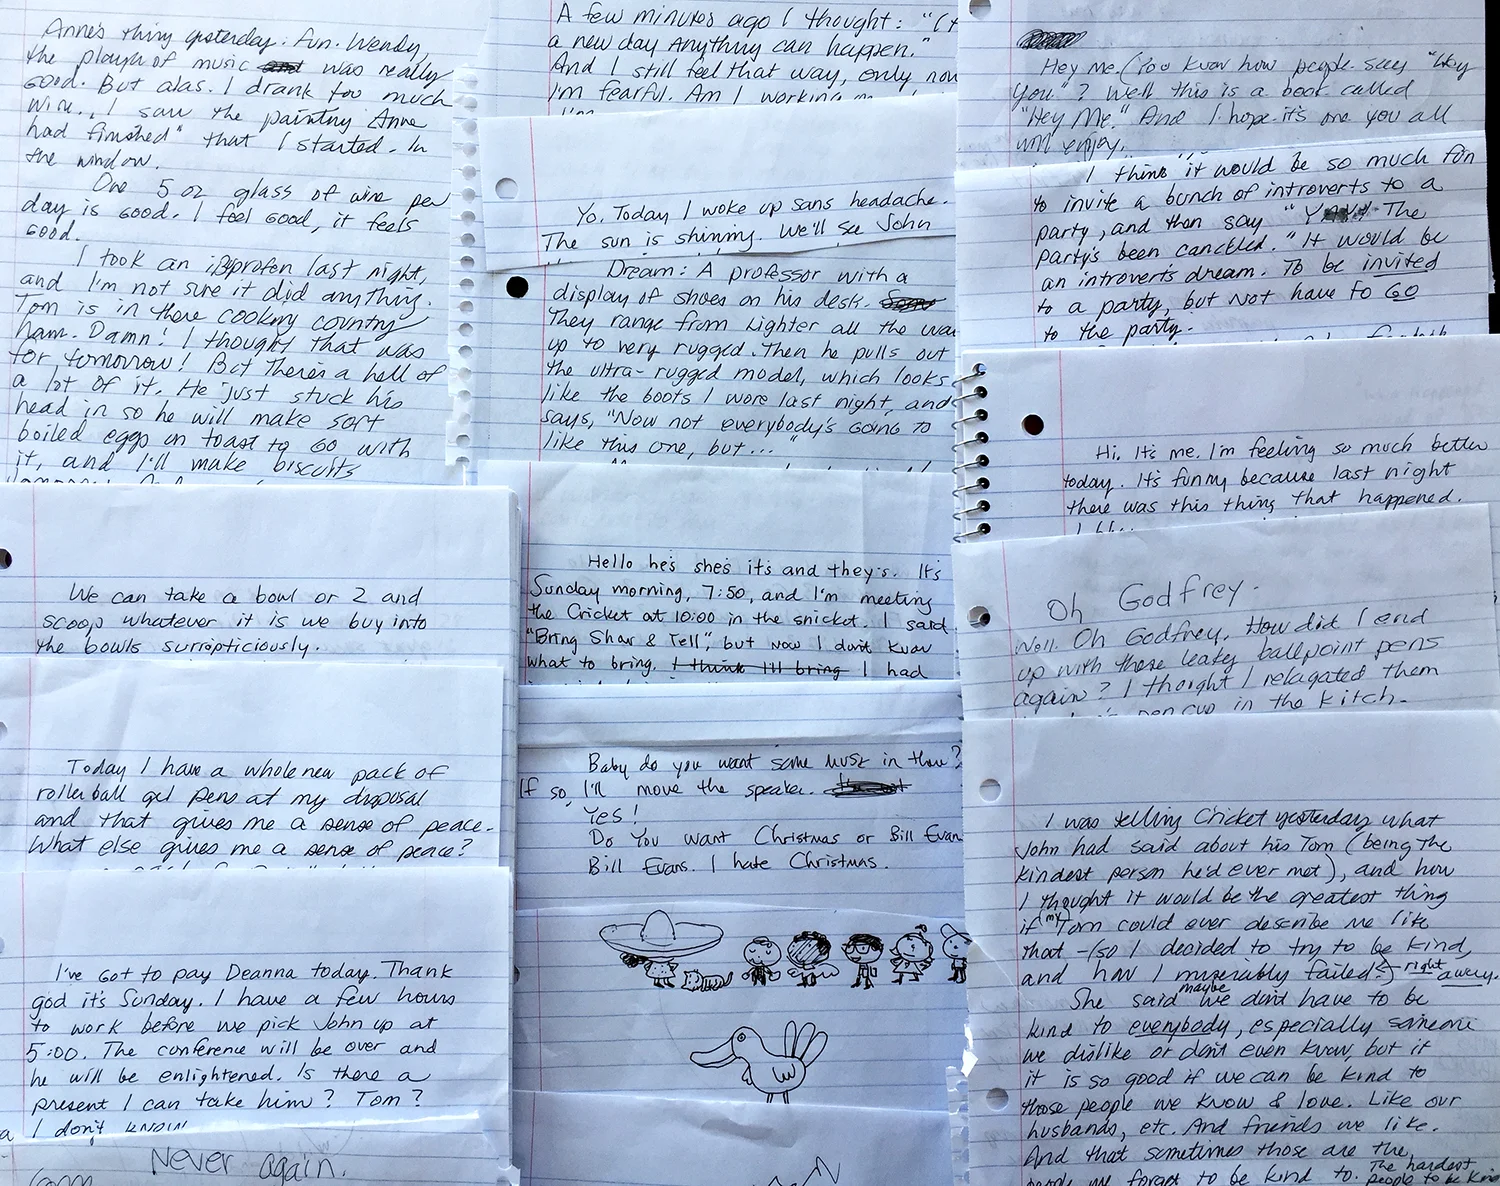 Anne's thing yesterday. Fun. Wendy,
the player of music was really
good. But alas. I drank too much
wine. I saw the painting Anne
had finished" that I started. In
the window.
One 5 oz glass of wine per
day is good. I feel good, it feels
good.
I took an last night,
and I'm not sure it did anything.
Tom is in there cooking country
ham. Damn! I thought that was
for tomorrow! But There's a hell of
a lot of it. He just stuck his
head in so he will make soft
boiled eggs on toast to go with
it, and I'll make biscuits
We can take a bowl or 2 and
scoop whatever it is we buy into
the bowls surropticiously.
Today I have a whole new pack of
roller ball gel pens at my disposal
and that gives me a sense of peace.
What else gives me a sense of peace?
I've got to pay Deanna today. Thank
god it's Sunday. I have a few hours
to work before we pick John up at
5:00. The conference will be over and
he will be enlightened. Is there a
present I can take him? Tom?
I don't know
Never again.
A few minutes ago I thought: "
a new day Anything can happen."
And I still feel that way, only now
I'm fearful. Am I working
I'm
Yo. Today I woke up sans headache.
The sun is shining. We'll see John
Dream: A professor with a
display of shoes on his desk.
They range from lighter all the way
up to very rugged. Then he pulls out
the ultra-rugged model, which looks
like the boots I wore last night, and
says, "Now not everybody's going to
like this one, but..."
Hello he's she's it's and they's. It's
Sunday morning, 7:50, and I'm meeting
the Cricket at 10:00 in the snicket. I said
"Bring Show & Tell", but now I don't know
what to bring. I think I'll bring I had
Baby do you want some in there?
If so, I'll move the speaker.
Yes!
Do you want Christmas or Bill Evan
Bill Evans. I hate Christmas.
Hey Me. (You know how people say "Hey
you"? Well this is a book called
"Hey Me." And I hope it's one you all
will enjoy.
I think it would be so much fun
to invite a bunch of introverts to a
party, and then say " The
party's been canclled." It would be
an introvert's dream. To be invited
to a party, but not have to GO
to the party.
Hi. It's me. I'm feeling so much better
today. It's funny because last night
there was this thing that happened.
Oh Godfrey.
Well. Oh Godfrey. How did I end
up with these leaky ballpoint pens
again? I thought I relagated them
pen cup in the kitch-
I was telling Cricket yesterday what
John had said about his Tom (being the
kindest person he'd ever met), and how
I thought it would be the greatest thing
if (my) Tom could ever describe me like
that - (so I decided to try to be kind,
and how I miserably failed ← right away.
She said maybe we don't have to be
kind to everybody, especially someone
we dislike or don't even know, but if
it is so good if we can be kind to
those people we know & love. Like our
husbands, etc. And friends we like.
And that sometimes those are the
people we forget to be kind to. The hardest
people to be kind